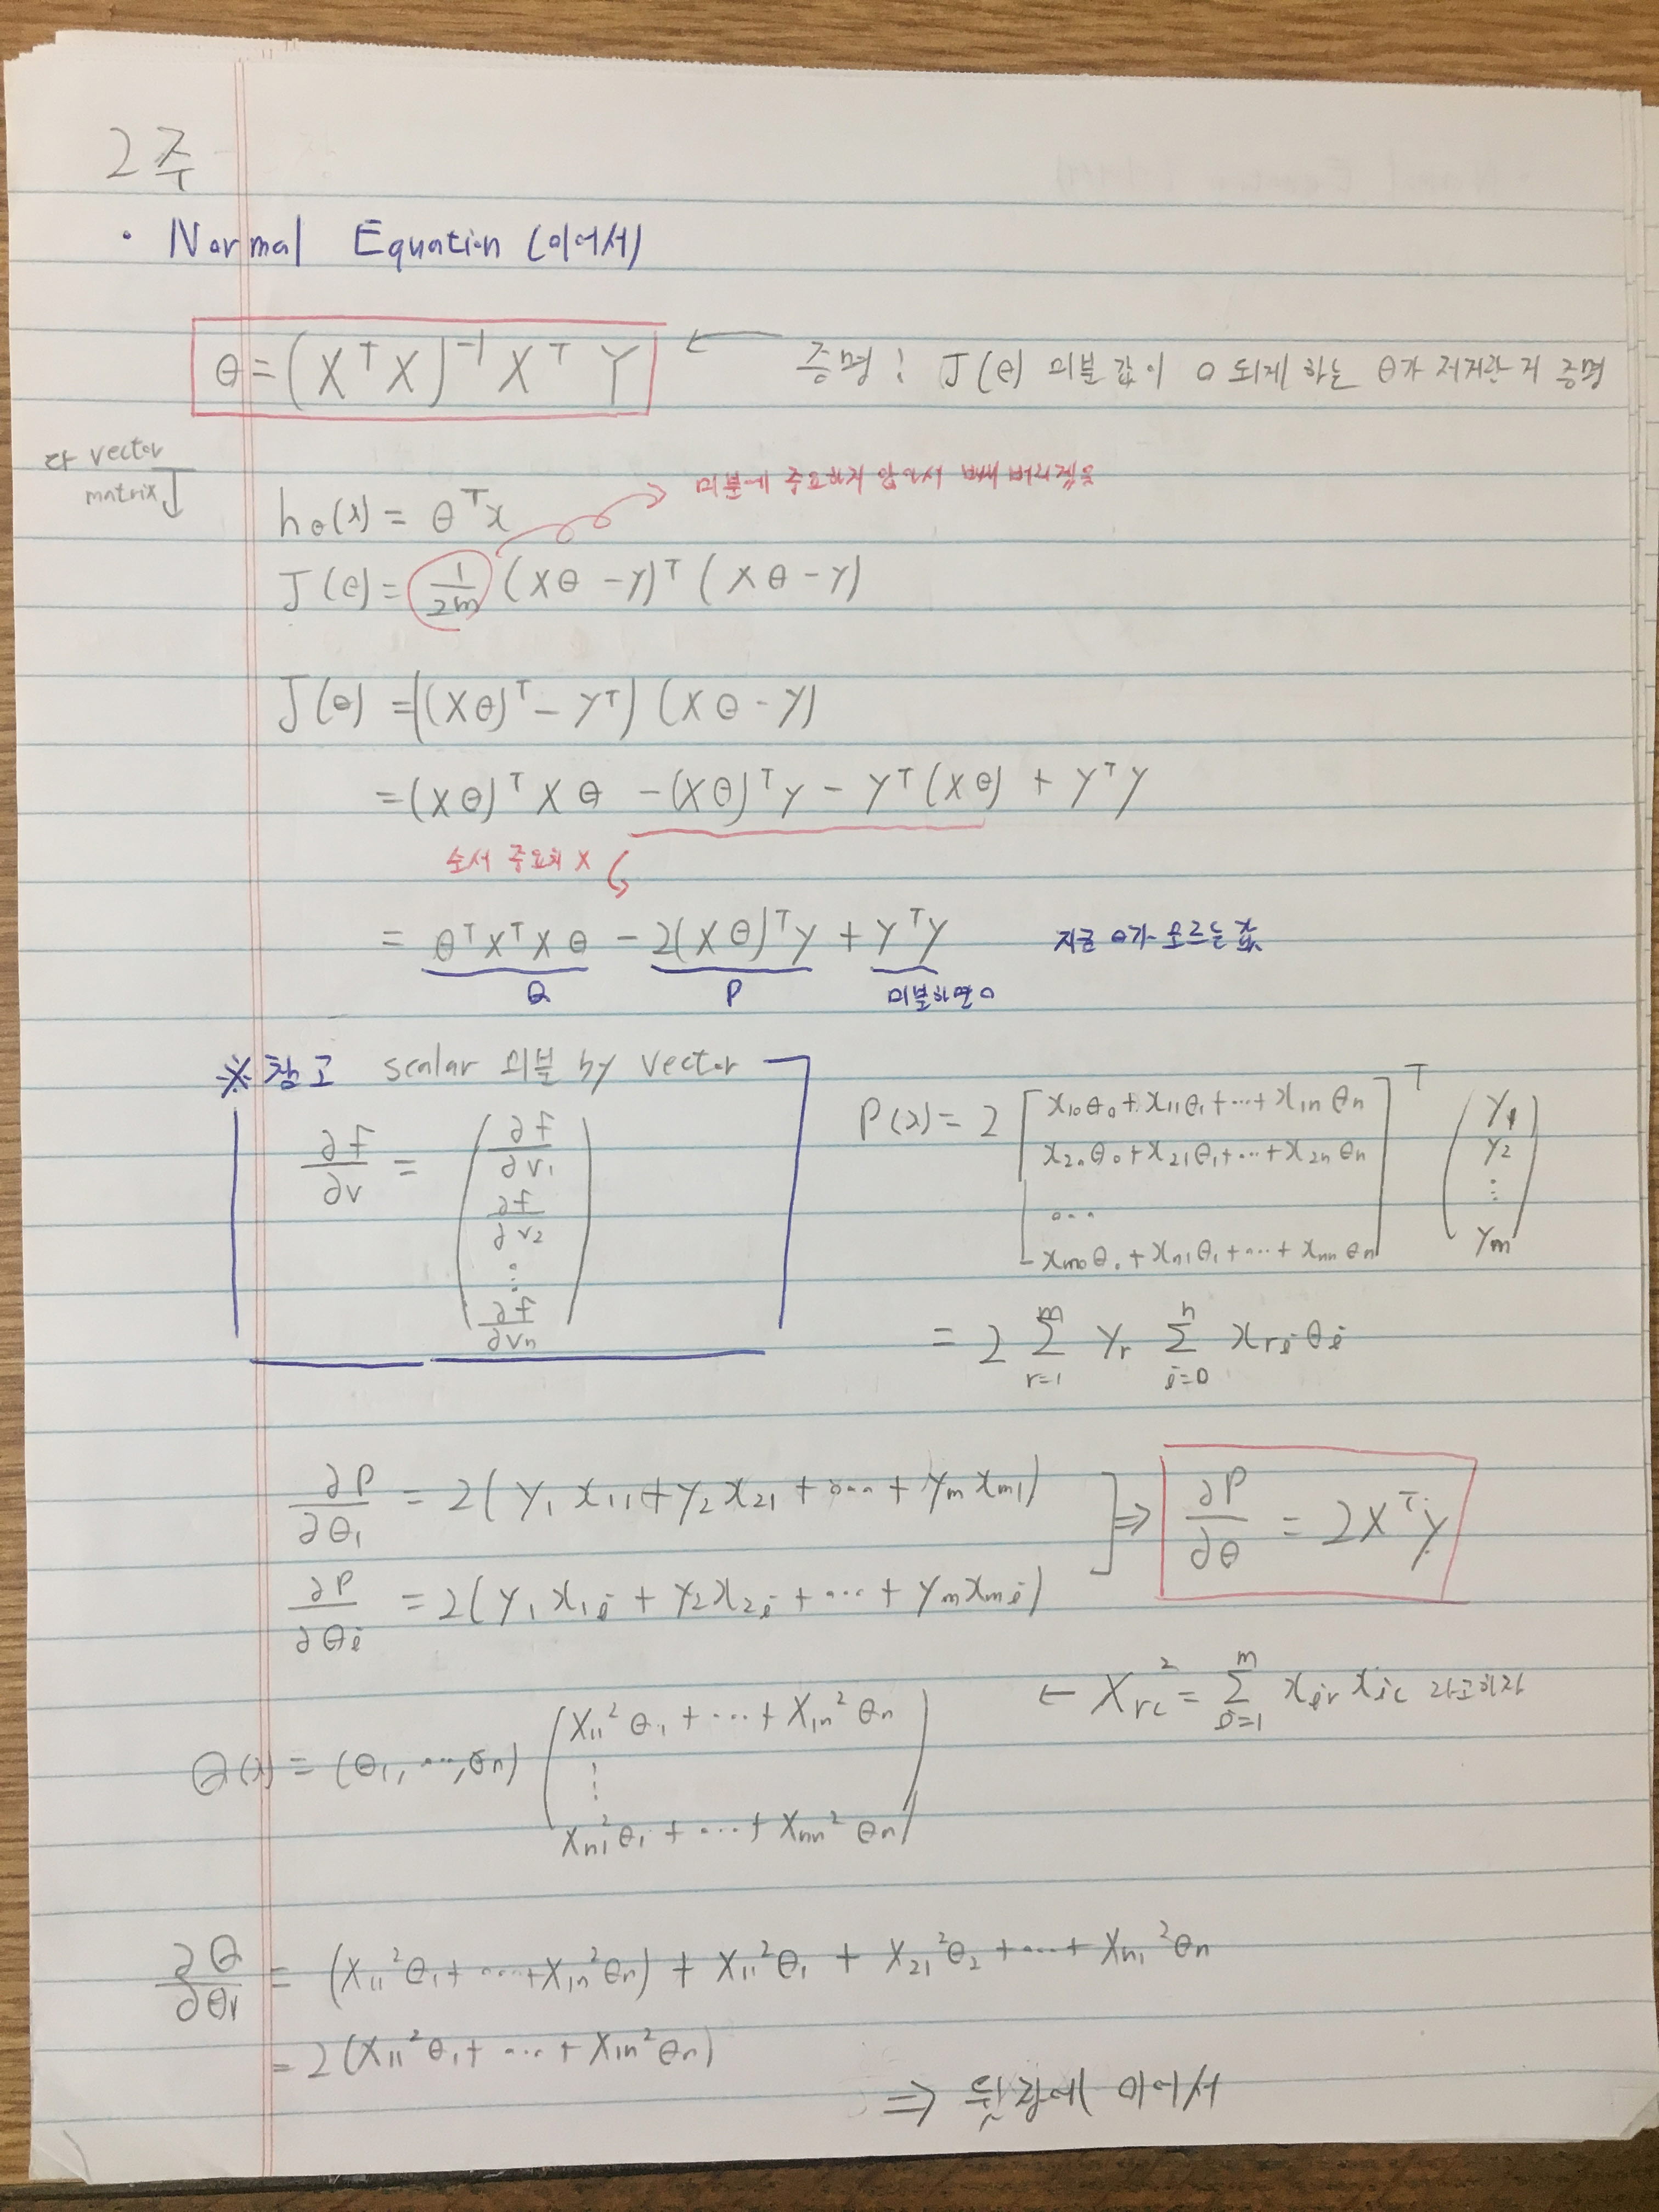 2주
· Normal Equation (이어서)
θ = (XᵀX)⁻¹XᵀY ← 증명 : J(θ) 미분 값이 0 되게 하는 θ가 저거란 거 증명
다 vector
matrix ↓
미분에 주요하지 않아서 빼 버리겠음
hθ(x) = θᵀx
J(θ) = 1/2m (Xθ - y)ᵀ (Xθ - y)
J(θ) = ((Xθ)ᵀ - yᵀ) (Xθ - y)
= (Xθ)ᵀXθ - (Xθ)ᵀy - yᵀ(Xθ) + yᵀy
순서 중요치 X
= θᵀXᵀXθ - 2(Xθ)ᵀy + yᵀy 지금 θ가 모르는 값
Q P 미분하면 0
※ 참고 scalar 미분 by vector
∂f/∂v = (∂f/∂v₁
∂f/∂v₂
⋮
∂f/∂vn)
P(x) = 2 [x₁₀θ₀ + x₁₁θ₁ + ··· + x₁nθn]ᵀ (y₁
x₂₀θ₀ + x₂₁θ₁ + ··· + x₂nθn y₂
··· ⋮
xm₀θ₀ + xn₁θ₁ + ··· + xnnθn ym)
= 2 Σ(r=1..m) yr Σ(i=0..n) xriθi
∂P/∂θ₁ = 2(y₁x₁₁ + y₂x₂₁ + ··· + ymxm₁) ⇒ ∂P/∂θ = 2Xᵀy
∂P/∂θi = 2(y₁x₁i + y₂x₂i + ··· + ymxmi)
← Xrc² = Σ(i=1..m) xir xic 라고하자
Q(x) = (θ₁, ···, θn) (X₁₁²θ₁ + ··· + X₁n²θn
⋮
Xn₁²θ₁ + ··· + Xnn²θn)
∂Q/∂θ₁ = (X₁₁²θ₁ + ··· + X₁n²θn) + X₁₁²θ₁ + X₂₁²θ₂ + ··· + Xn₁²θn
= 2(X₁₁²θ₁ + ··· + X₁n²θn)
⇒ 뒷장에 이어서